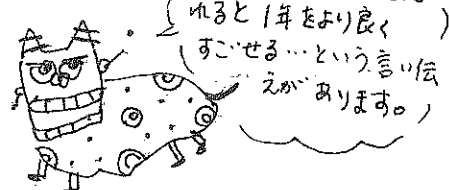 れると1年をより良く
すごせる…という言い伝
えがあります。